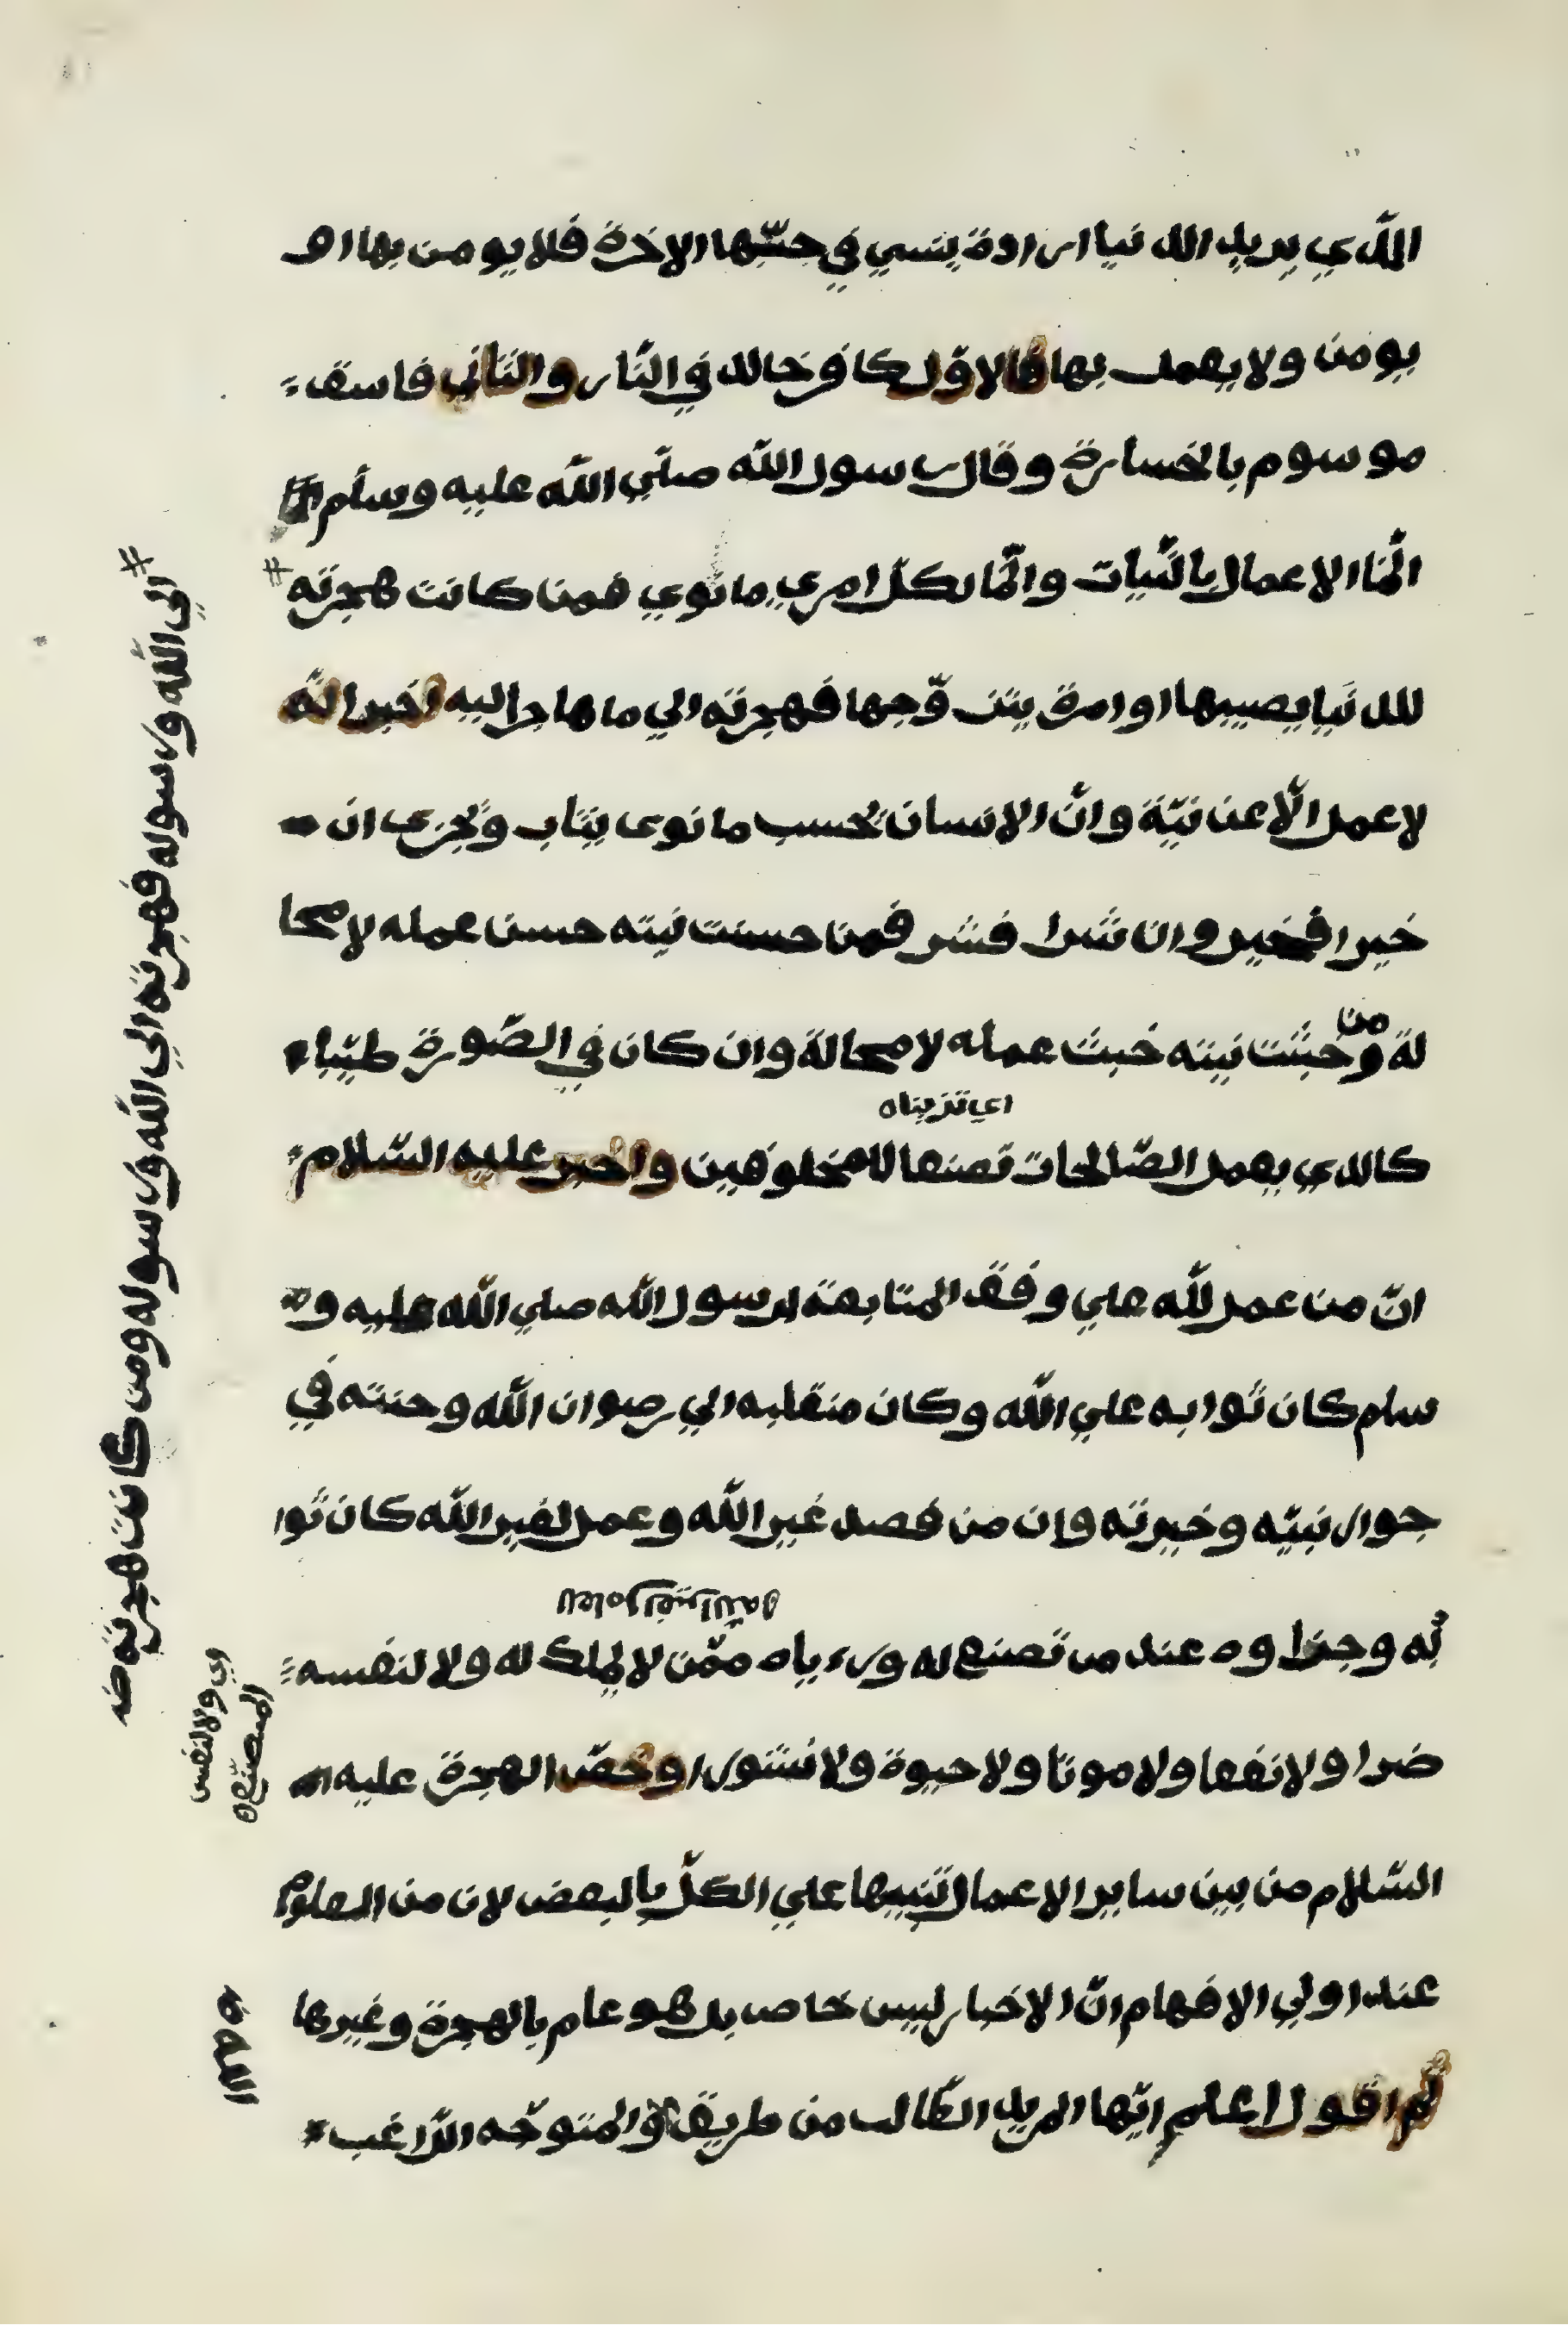 الّذي يريد الدنيا ارادة ينسي في حبّها الاخرة فلا يومن بها او
يومن ولا يعمل بها فالاوّل كافر خالد في النّار والثّاني فاسق
موسوم بالخسارة وقال رسول الله صلّي الله عليه وسلّم
انّما الاعمال بالنّيات وانّما لكلّ امري ما نوي فمن كانت هجرته #
# الي الله ورسوله فهجرته الي الله ورسوله ومن كانت هجرته
للدنيا يصيبها او امرة يتزوّجها فهجرته الي ما هاجر اليه اخبر انّه
لا عمل الّا عن نيّة وانّ الانسان بحسب ما نوى يثاب ويجزى ان
خيرا فخير وان شرا فشر فمن حسنت نيته حسن عمله لا محا
من
لة و خبثت نيته خبث عمله لا محالة وان كان في الصّورة طيّبا
اي تزيناه
كالذي يعمل الصّالحات تصنعا للمخلوقين واخبر عليه السّلام
انّ من عمل لله علي وفق المتابعة لرسول الله صلي الله عليه و
سلم كان ثوابه علي الله وكان منقلبه الي رضوان الله وجنته في
جوار نبيّه وخيرته وان من قصد غير الله وعمل لغير الله كان ثوا
به وجزاوه عند من تصنع له ورءياه ممّن لا يملك له ولا لنفسه
اي ولا لنفس
المتصنّع
ضرا ولا نفعا ولا موتا ولا حيوة ولا نشورا وخصّ الهجرة عليه
السّلام من بين ساير الاعمال تنبيها علي الكلّ بالبعض لان من المعلوم
عند اولي الافهام انّ الاخبار ليس خاص بل هو عام بالهجرة وغيرها
ثم اقول اعلم ايّها المريد الطّالب من طريق والمتوجّه الرّاغب